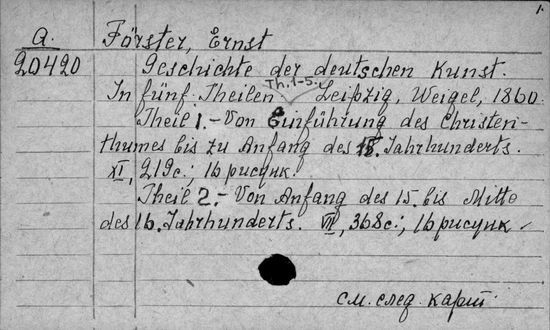 1.
a. Förster, Ernst
20420 Geschichte der deutschen Kunst.
Th. 1-5.
In fünf Theilen Leipzig, Weigel, 1860.
Theil 1.- Von Einführung des Christen-
thumes bis zu Anfang des 15. Jahrhunderts.
XI, 219с.; 16 рисунк.
Theil 2.- Von Anfang des 15. bis Mitte
des 16. Jahrhunderts. VII, 368с.; 16 рисунк.
см. след. карт.